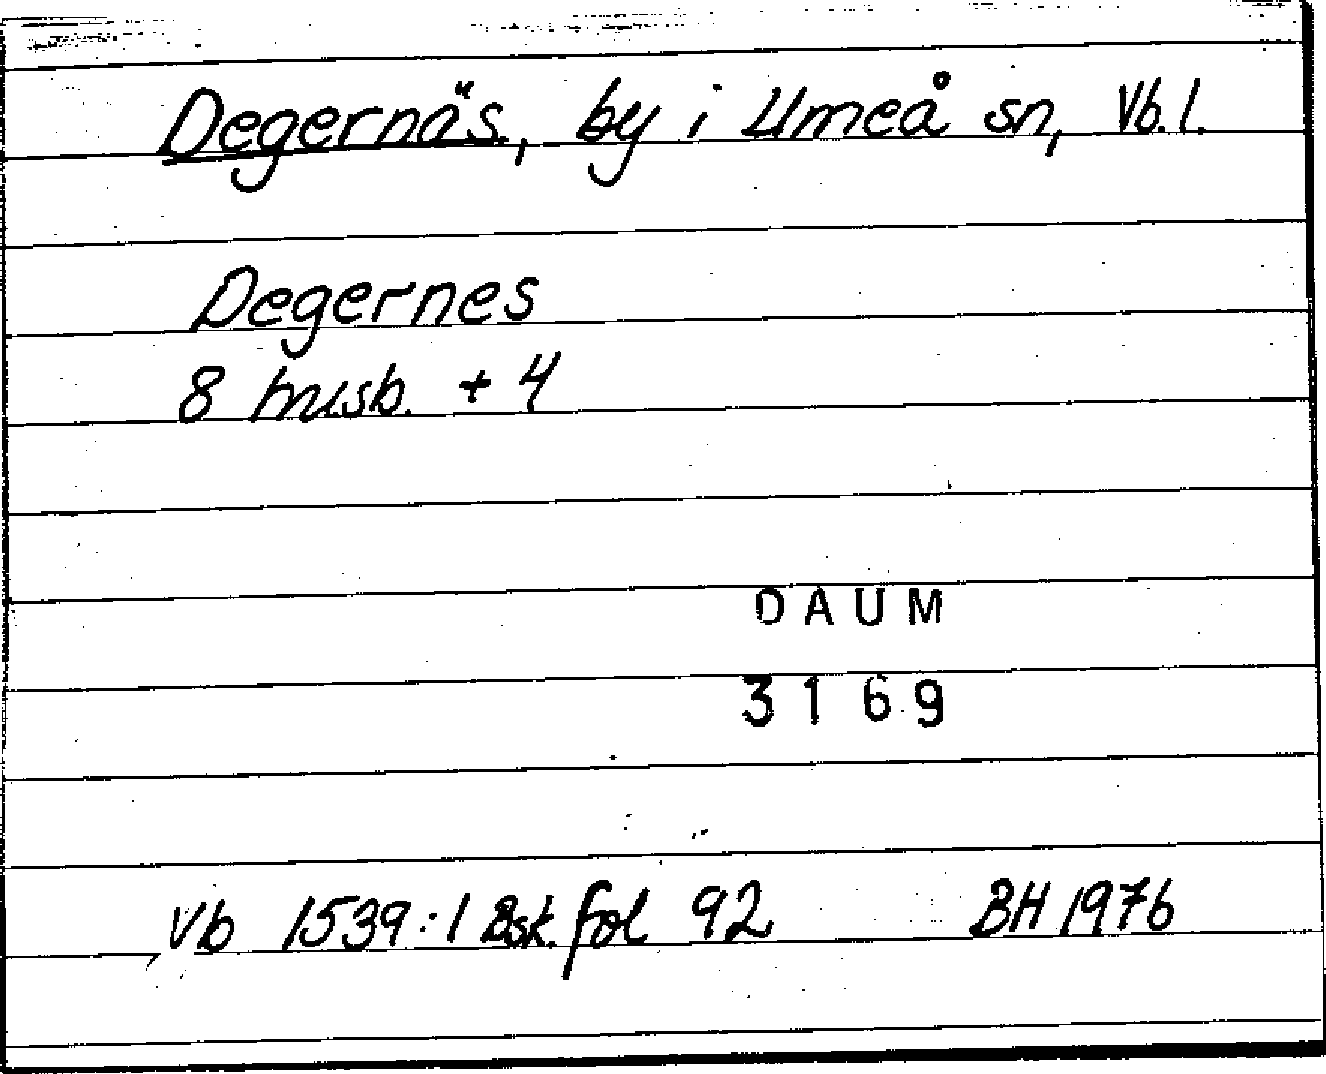 Degernäs, by i Umeå sn, Vb. l.
Degernes
8 husb. + 4
DAUM
3169
Vb 1539:1 Bsk. fol 92 BH 1976